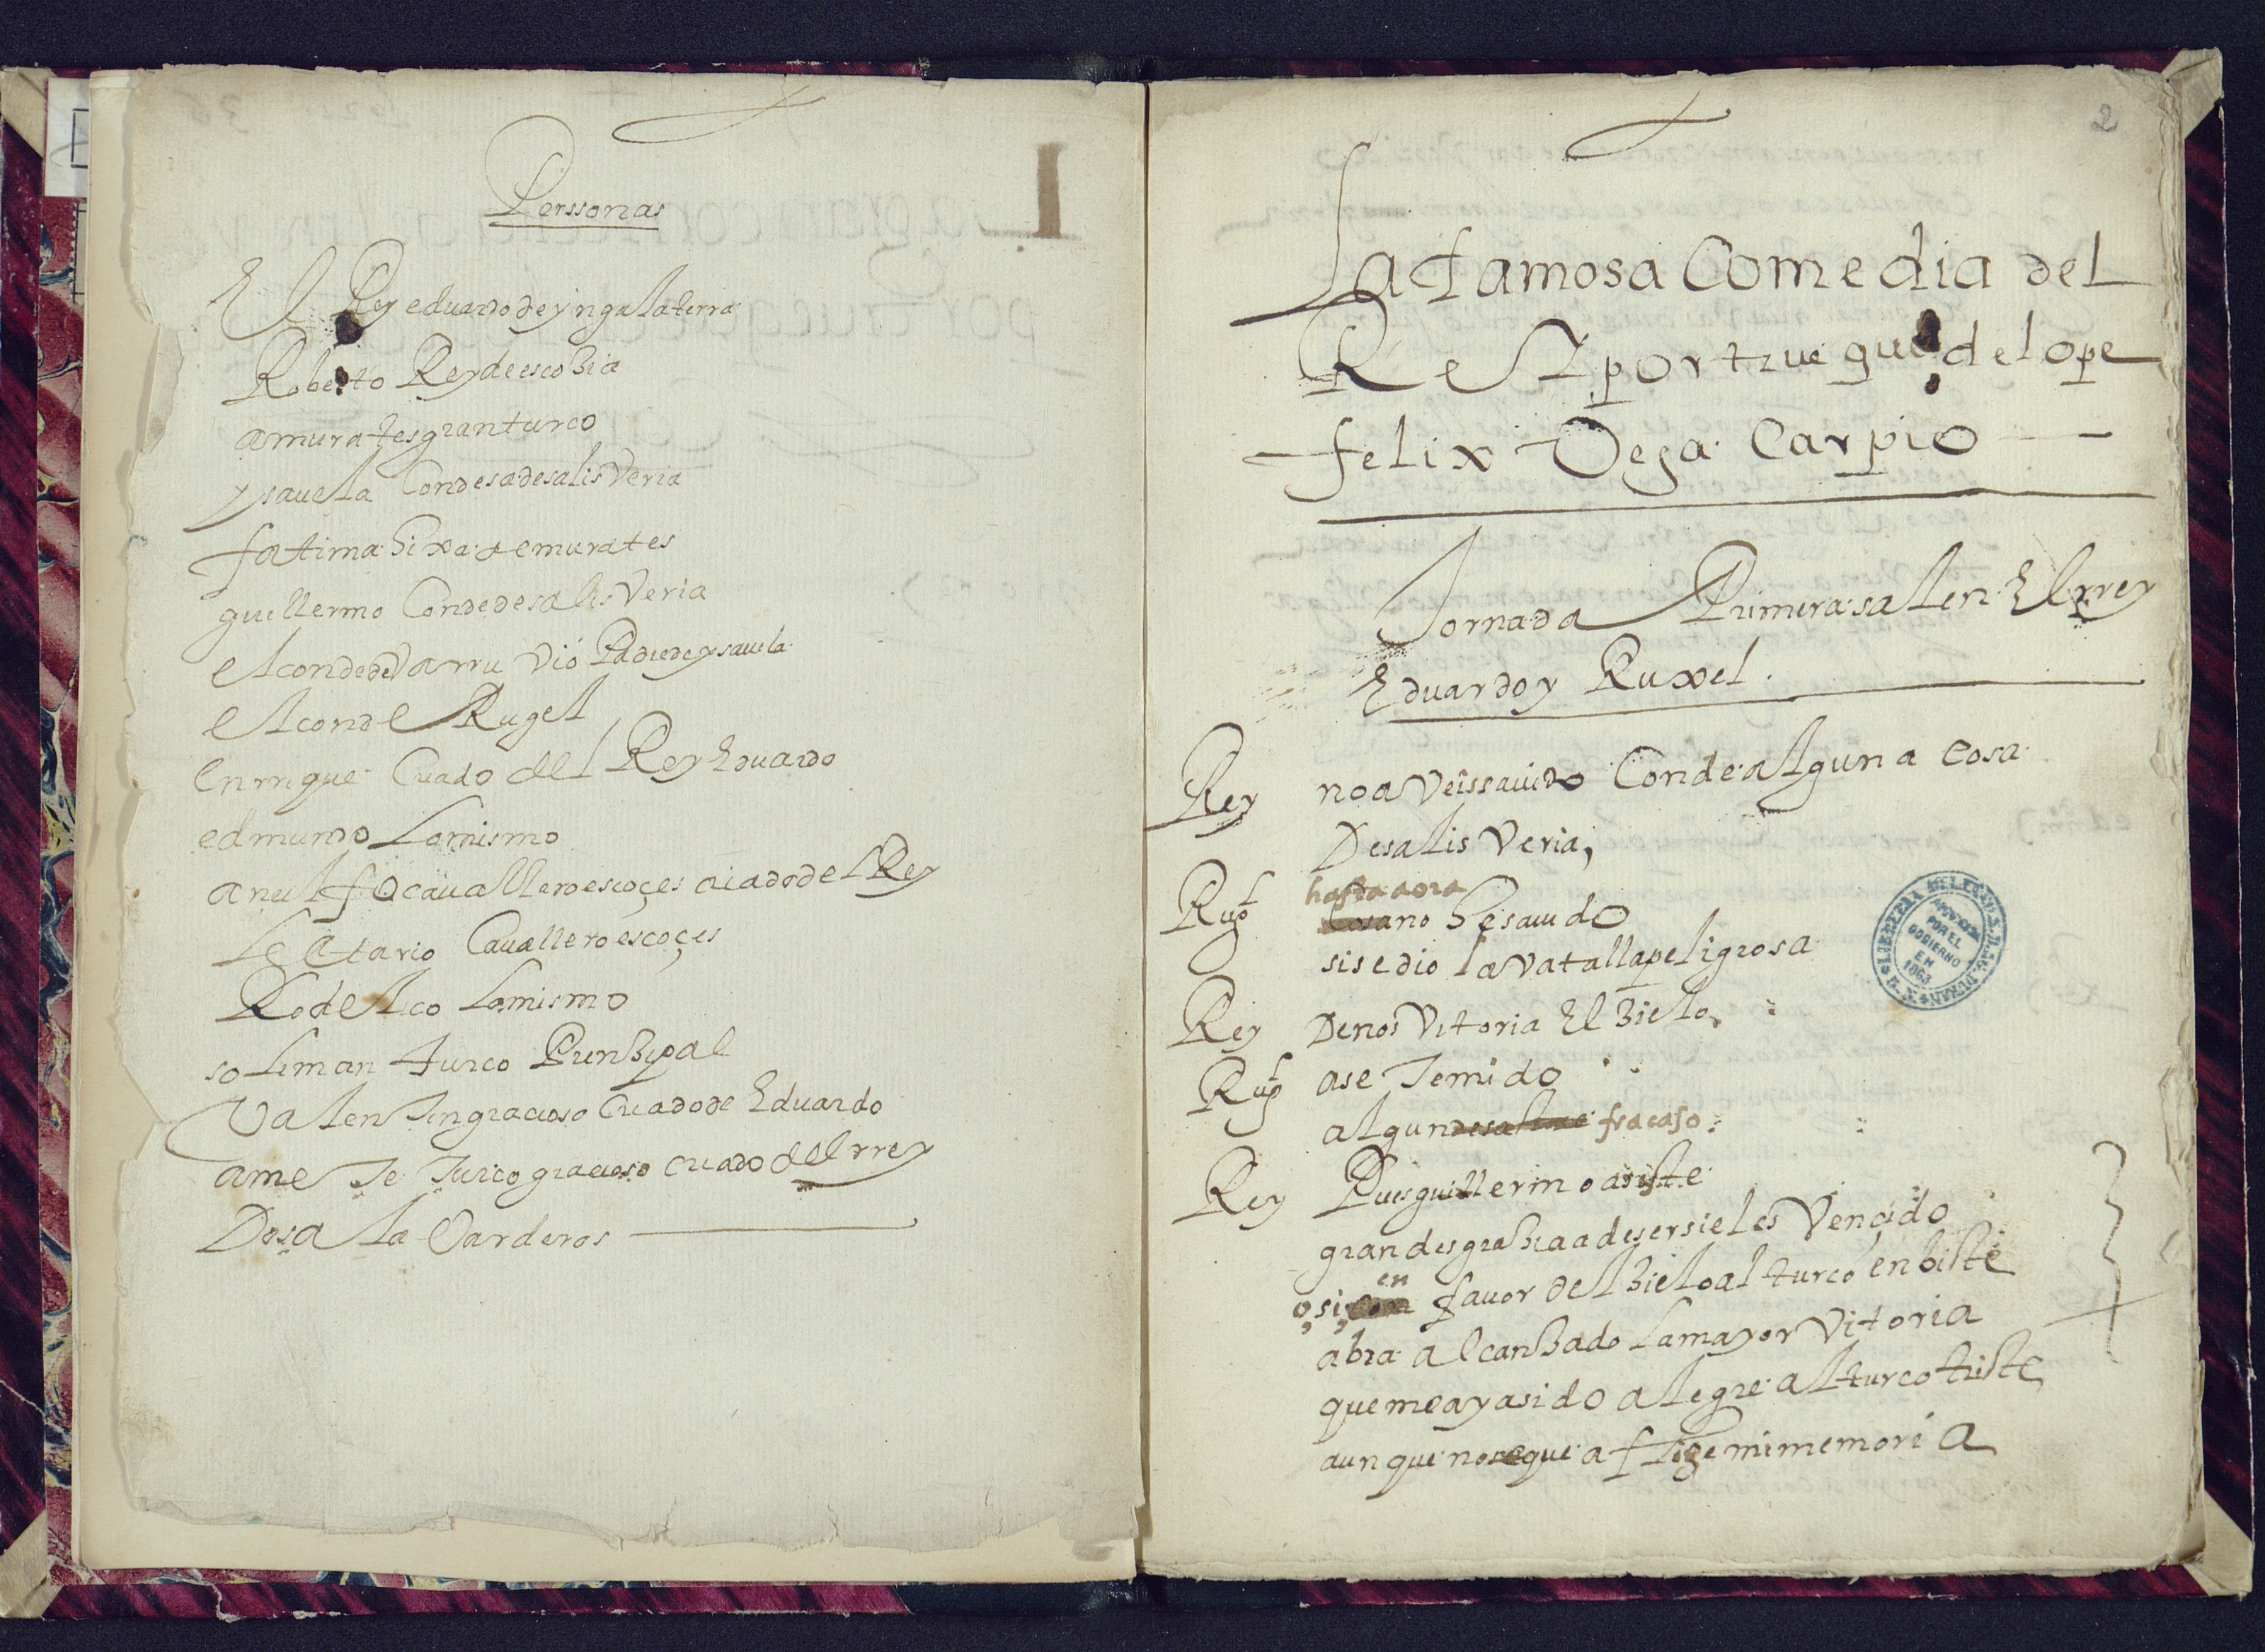 Perssonas
El Rey eduardo de yngalaterra
Roberto Rey de escoZia
amurates gran turco
ysauela Condesa de salisVeria
fatima hixa de murates
guillermo Conde de salisVeria
el conde de Varruvió Padre de ysauela
el conde Rugel
enrrique Criado del Rey Eduardo
edmundo lo mismo
arnulfo cauallero escoçes criado del Rey
Cauallero escoçes
Rodelco lo mismo
soliman turco PrinZipal
Valentin gracioso Criado de Eduardo
amete Turco gracioso criado del rrey
Dos alaVarderos
2
La famosa Comedia del
Rey por trueque de lope
felix Vega Carpio
Jornada Primera salen El rrey
Eduardo y Ruxel.
Rey no aveis sauido Conde alguna cosa
De salis Veria,
hasta aora
Rugl Cosa no he sauido
si se dio la vatalla peligrosa
Rey Denos Vitoria El Zielo
Rugl ase Temido
algun desastre fracaso
Rey Pues guillermo asiste
gran desgraZia a de ser si el es Vençido
en
o, si, con fauor del Zielo al turco enbiste
abra alcanZado la mayor Vitoria
que me aya sido alegre al turco triste
aunque no se que aflige mi memoria
ADQUIRIDA
POR EL
GOBIERNO
EN
1863